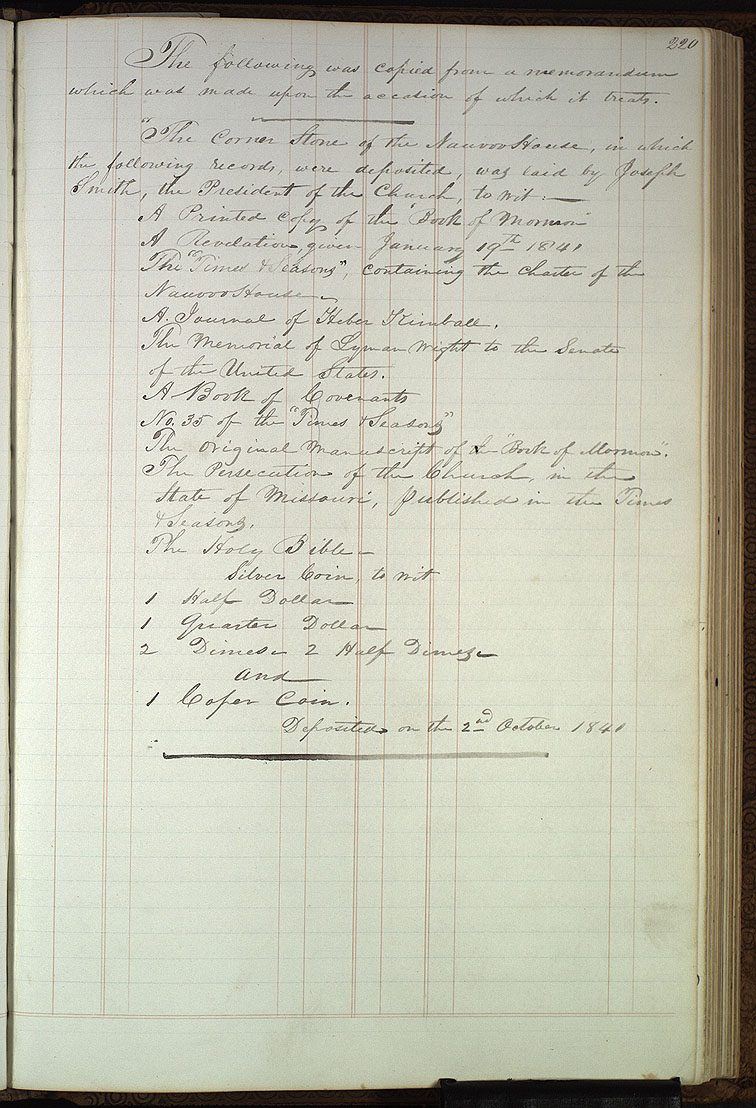 220
The following was copied from a memorandum
which was made upon the occasion of which it treats.
"The Corner Stone of the Nauvoo House, in which
the following records, were deposited, was laid by Joseph
Smith, the President of the Church, to wit:—
A Printed Copy of the "Book of Mormon"
A Revelation, given January 19th 1841
The "Times & Seasons", containing the Charter of the
Nauvoo House.
A. Journal of Heber Kimball.
The Memorial of Lyman Wight to the Senate
of the United States.
A Book of Covenants
No. 35 of the "Times & Seasons"
The Original Manuscript of the "Book of Mormon".
The Persecution of the Church, in the
State of Missouri, published in the Times
& Seasons.
The Holy Bible—
Silver Coin, to wit
1 Half Dollar
1 Quarter Dollar
2 Dimes— 2 Half Dimes—
and
1 Coper Coin.
Deposited on the 2nd October 1841